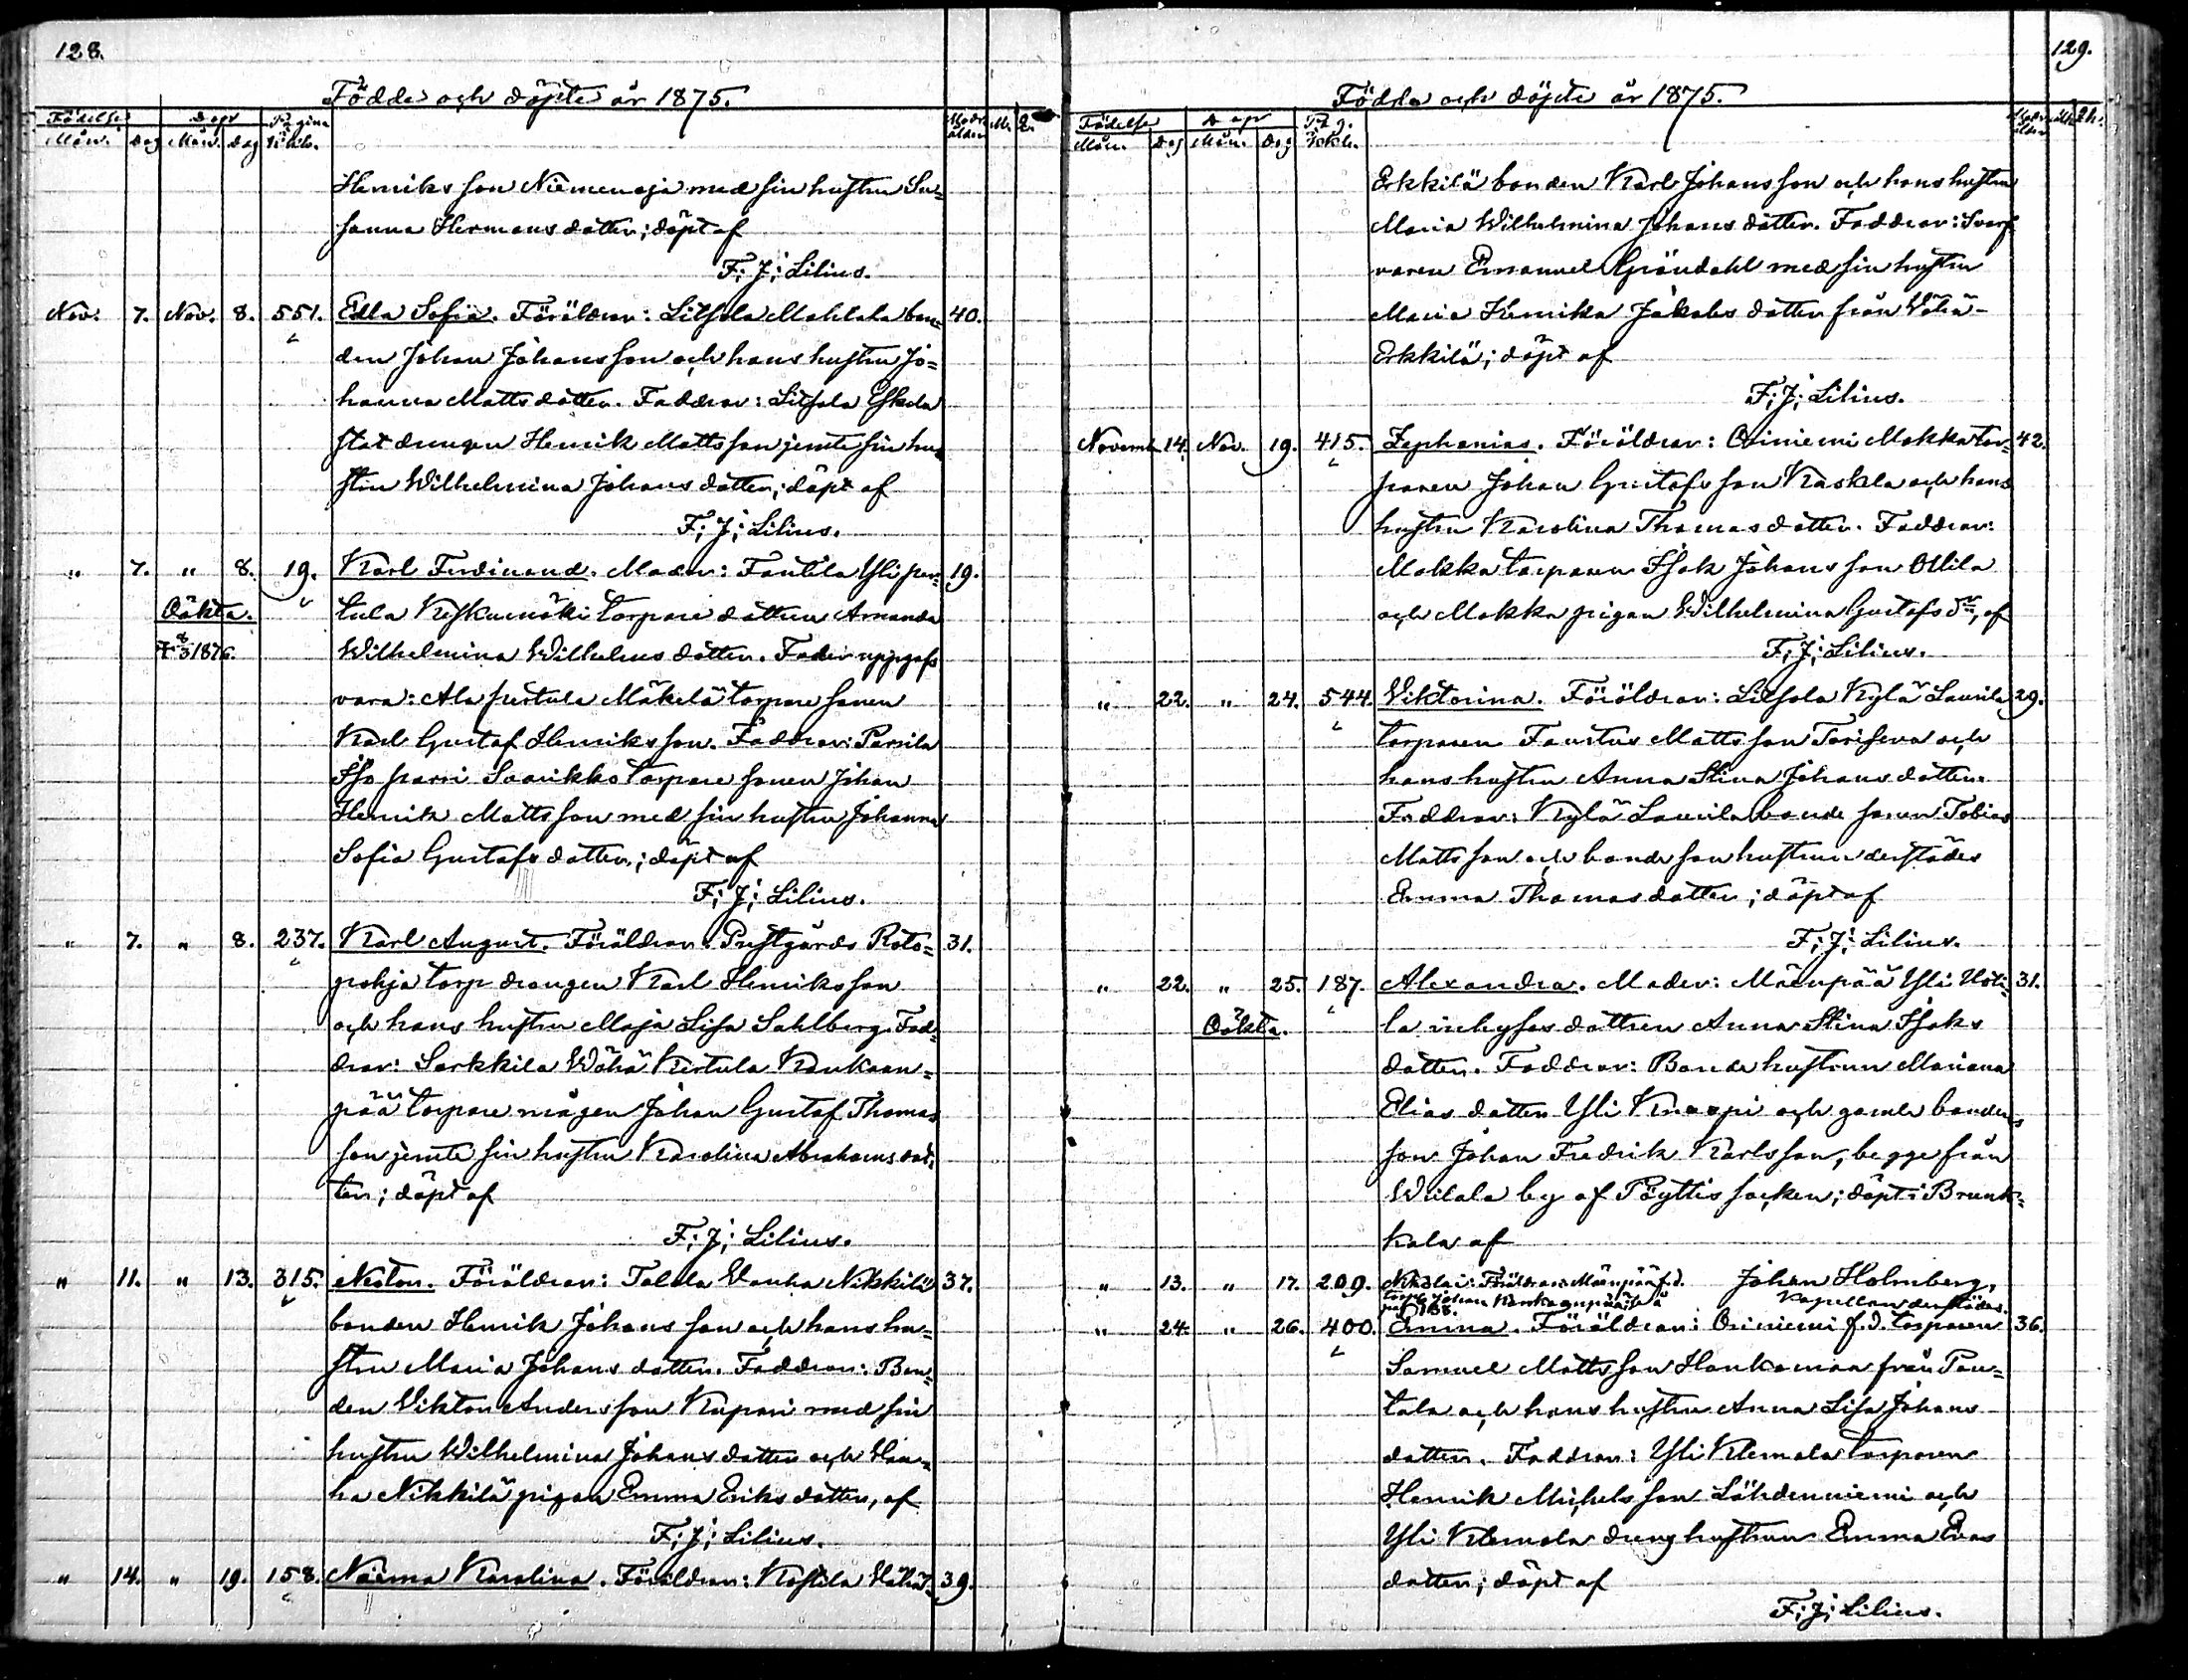 128.
Födde och döpte år 1875.
Födelse Dop Pagina Moders ålder M. Q.
Mån. Dag Mån. Dag
Henriks son Niemenoja med sin hustru Su=
sanna Hermans dotter; döpt af
F; J; Lilius.
Nov. 7. Nov. 8. 551. Edla Sofia. Föräldrar: Liisola Mahlala bon= 40.
den Johan Johansson och hans hustru Jo=
hanna Mattsdotter. Faddrar: Liisola Eskola
stat drängen Henrik Mattsson jemte sin hu=
stru Wilhelmina Johans dotter; döpt af
F; J; Lilius.
" 7. " 8. 19. Karl Ferdinand. Moder: Tantila Yli per= 19.
Oäkta. tula Keskumäki torpare dottern Amanda
1876. Wilhelmina Wilhelms dotter. Fader uppgafs
vara: Ala pertula Mäkelä torpare sonen
Karl Gustaf Henriksson. Faddrar: Parsila
Iso parri Saarikko torpare sonen Johan
Henrik Mattsson med sin hustru Johanna
Sofia Gustafs dotter; döpt af
F; J; Lilius.
" 7. " 8. 237. Karl August. Föräldrar: Prestgårds Roto= 31.
pohja torp drängen Karl Henriksson
och hans hustru Maja Lisa Sahlberg. Fad=
drar: Sarkkila Wähä Kertula Kankaan=
pää torpare mågen Johan Gustaf Thomas
son jemte sin hustru Karolina Abrahams dot=
ter; döpt af
F; J; Lilius.
" 11. " 13. 315. Nestor. Föräldrar: Talola Wanha Nikkilä 37.
bonden Henrik Johansson och hans hu=
stru Maria Johans dotter. Faddrar: Bon=
den Viktor Andersson Kupari med sin
hustru Wilhelmina Johans dotter och Wan=
ha Nikkilä pigan Emma Eriks dotter, af
F; J; Lilius.
" 14. " 19. 158. Naima Karolina. Föräldrar: Koskila Wähä- 39.
129.
Födda och döpte år 1875.
Födelse Dop Pag. Moders ålder
Mån. Dag Mån. Dag
Erkkilä bonden Karl Johansson och hans hustru
Maria Wilhelmina Johans dotter. Faddrar: Svarf
varen Emanuel Gröndahl med sin hustru
Maria Henrika Jakobs dotter från Wähä-
Erkkilä; döpt af
F; J; Lilius.
Novemb. 14. Nov. 19. 415. Zephanias. Föräldrar: Oriniemi Mokka tor= 42.
paren Johan Gustafsson Kaskela och hans
hustru Karolina Thomas dotter. Faddrar:
Mokka torparen Isak Johansson Ollila
och Mokka pigan Wilhelmina Gustafs dr, af
F; J; Lilius.
" 22. " 24. 544. Viktorina. Föräldrar: Liisola Kylä Laurila 29.
torparen Faustus Mattsson Torisewa och
hans hustru Anna Stina Johans dotter.
Faddrar: Kylä Laurila bonde sonen Tobias
Mattsson och bondsonhustrun derstädes
Emma Thomas dotter; döpt af
F; J; Lilius.
" 22. " 25. 187. Alexandra. Moder: Mäenpää Yli Uoti= 31.
Oäkta. la inhyses dottren Anna Stina Isaks
dotter. Faddrar: Bonde hustrun Mariana
Elias dotter Yli Knaapi och gamle bondens
son Johan Fredrik Karlsson, begge från
Wiilala by af Pöyttis socken; döpt i Brunk=
kala af
Johan Holmberg,
Kapellan derstädes.
" 13. " 17. 209. Nikolai: Föräldrar: Mäenpää f.d.
torp. Johan Kankaanpää; se å
pag. 138.
" 24. " 26. 400. Emma. Föräldrar: Oriniemi f.d. torparen 36.
Samuel Mattsson Hankamaa från Pau=
tala och hans hustru Anna Lisa Johans
dotter. Faddrar: Yli Klemola torparen
Henrik Michelsson Lähdenniemi och
Yli Klemola dreng hustrun Emma Evas
dotter; döpt af
F; J; Lilius.